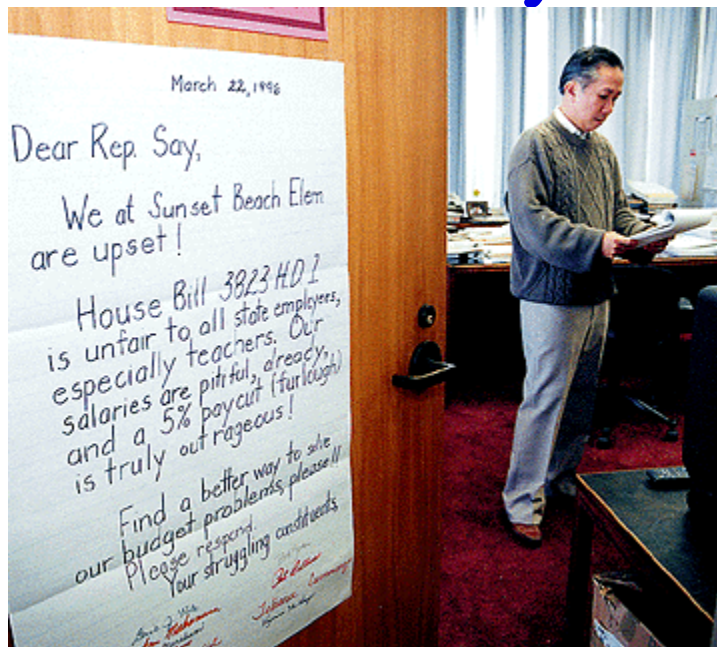 March 22, 1996
Dear Rep. Say,
We at Sunset Beach Elem
are upset!
House Bill 3823 H.D 1
is unfair to all state employees,
especially teachers. Our
salaries are pitiful, already,
and a 5% paycut (furlough)
is truly outrageous!
Find a better way to solve
our budget problems, please!!
Please respond.
Your struggling constituents,